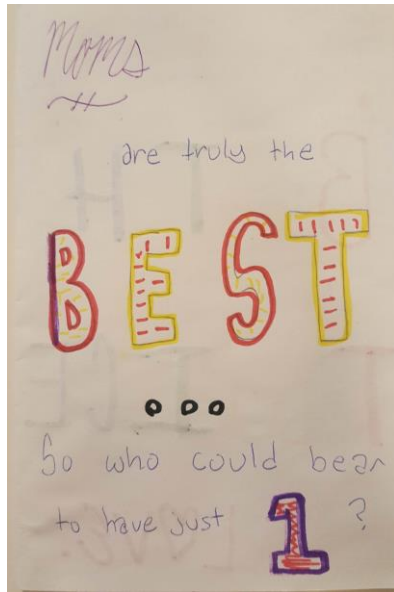 Moms
are truly the
BEST
...
So who could bear
to have just 1 ?